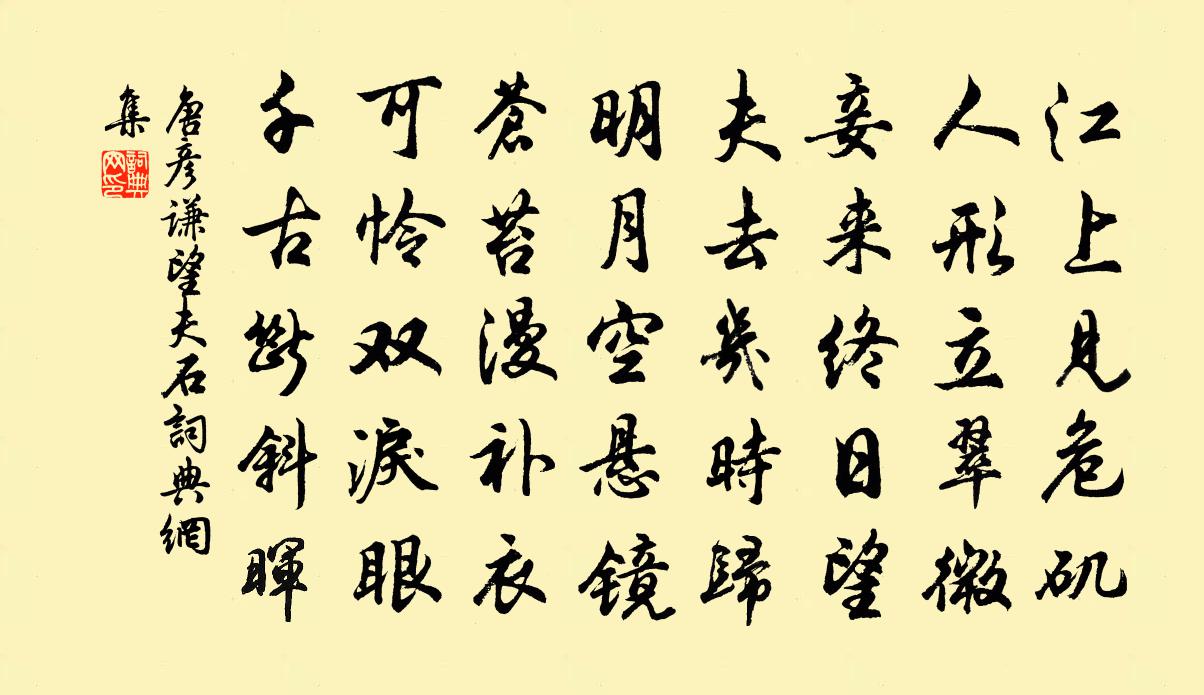 江上见危矶
人形立翠微
妾来终日望
夫去幾時歸
明月空悬镜
蒼苔漫补衣
可怜双淚眼
千古斷斜暉
唐彦谦望夫石詞典網
集
詞典网印